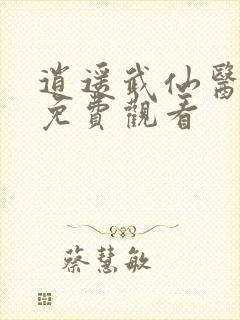 逍遥武仙醫
免費觀看
蔡慧敏